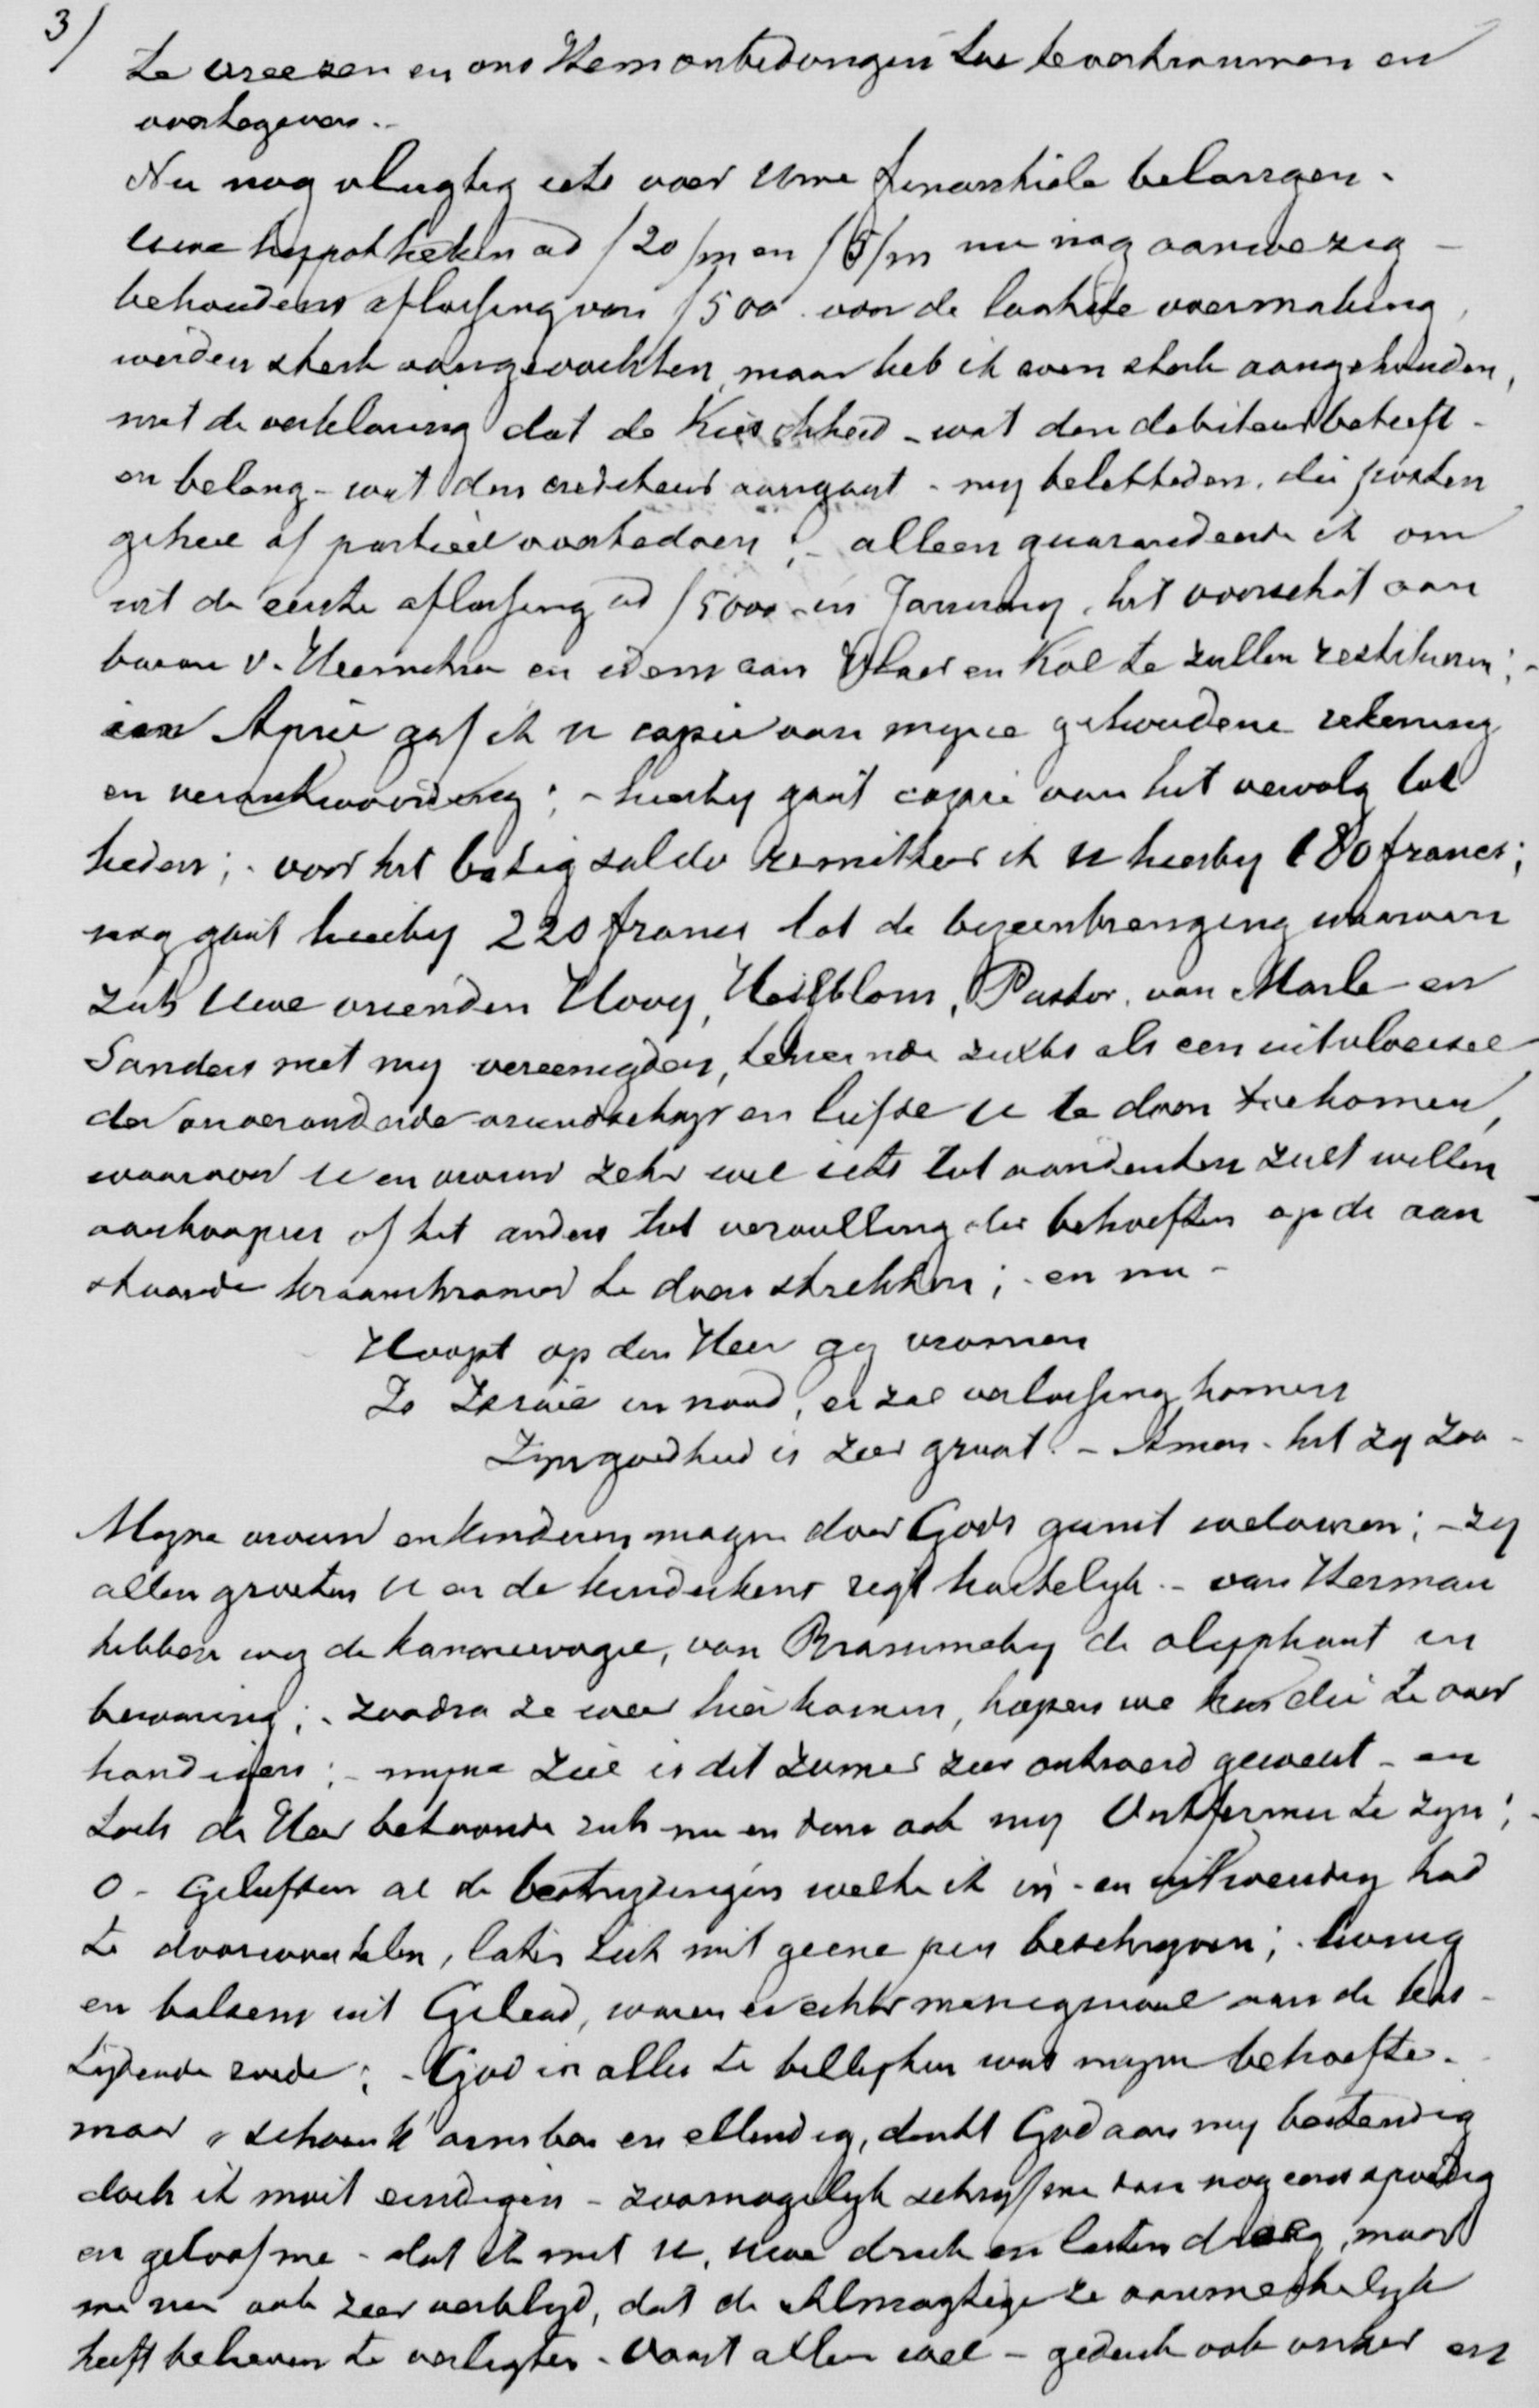 3/
te vreezen en ons Hem onbedongen toe te vertrouwen en
overtegeven.-
Nu nog vlugtig iets over Uwe finantiele belangen.
Uwe hypotheken ad ƒ20/m en ƒ5/m nu nog aanwezig -
behoudens aflossing van ƒ500. van de laatste vermaking,
werden sterk aangevochten, maar heb ik even sterk aangehouden,
met de verklaring dat de Kieschheid - wat den debiteur betreft -
en belang - wat den crediteur aangaat - my beletteden, die posten
geheel of partieel overtedoen; - alleen guarandeerde ik om
uit de eerste aflossing ad ƒ5000 - in January, het voorschot aan
baron v. Heemstra en idem aan Vlaer en Kol te zullen restitueren; -
in April gaf ik U copie van myne gehoudene rekening
en verantwoording; - hierby gaat copie van het vervolg tot
heden; - voor het batig saldo remitteer ik U hierby 180 francs;
nog gaat hierby 220 francs tot de byeenbrenging waarvan
zich Uwe vrienden Hovy, Heilblom, Pastor, van Marle en
Sanders met my vereenigden, teneinde zulks als een uitvloeisel
der onveranderde vriendschap en liefde U te doen toekomen,
waarvoor U en vrouw zeker wel iets tot aandenken zult willen
aankoopen of het anders tot vervulling der behoeften op de aan
staande kraamkamer te doen strekken; - en nu -
Hoopt op den Heer gy vromen
Is Israel in nood, er zal verlossing komen
Zyn goedheid is zeer groot. - Amen - het zy zoo -
Myne vrouw en kinderen mogen door Gods gunst welvaren; - zy
allen groeten U en de kinderkens regt hartelyk. - van Herman
hebben wy de kanarievogel, van de olyphant in
bewaring; - zoodra ze weer hier komen, hopen we hun die te over
handigen; - myne ziel is dit zomer zeer ontroerd geweest - en
toch de Heer betoonde zich nu en dan ook my Ontfermer te zyn; -
O - Geliefden al de bestrydingen welke ik in - en uitwendig had
te doorworstelen, laten zich met geene pen beschryven; - honig
en balsem uit Gilead, waren er echter menigmaal aan de kas-
tydende roede; - God in alles te billyken was myne behoefte -
maar „schoon 'k arm ben en ellendig, denkt God aan my bestendig
doch ik moet eindigen - zoo mogelyk schryf me dan nog eens spoedig
en geloof me - dat ik met U, Uwe druk en lasten draag, maar
me nu ook zeer verblyd, dat de Almagtige ze aanmerkelyk
heeft believen te verligten - Vaart allen wel - gedenk ook onzer en